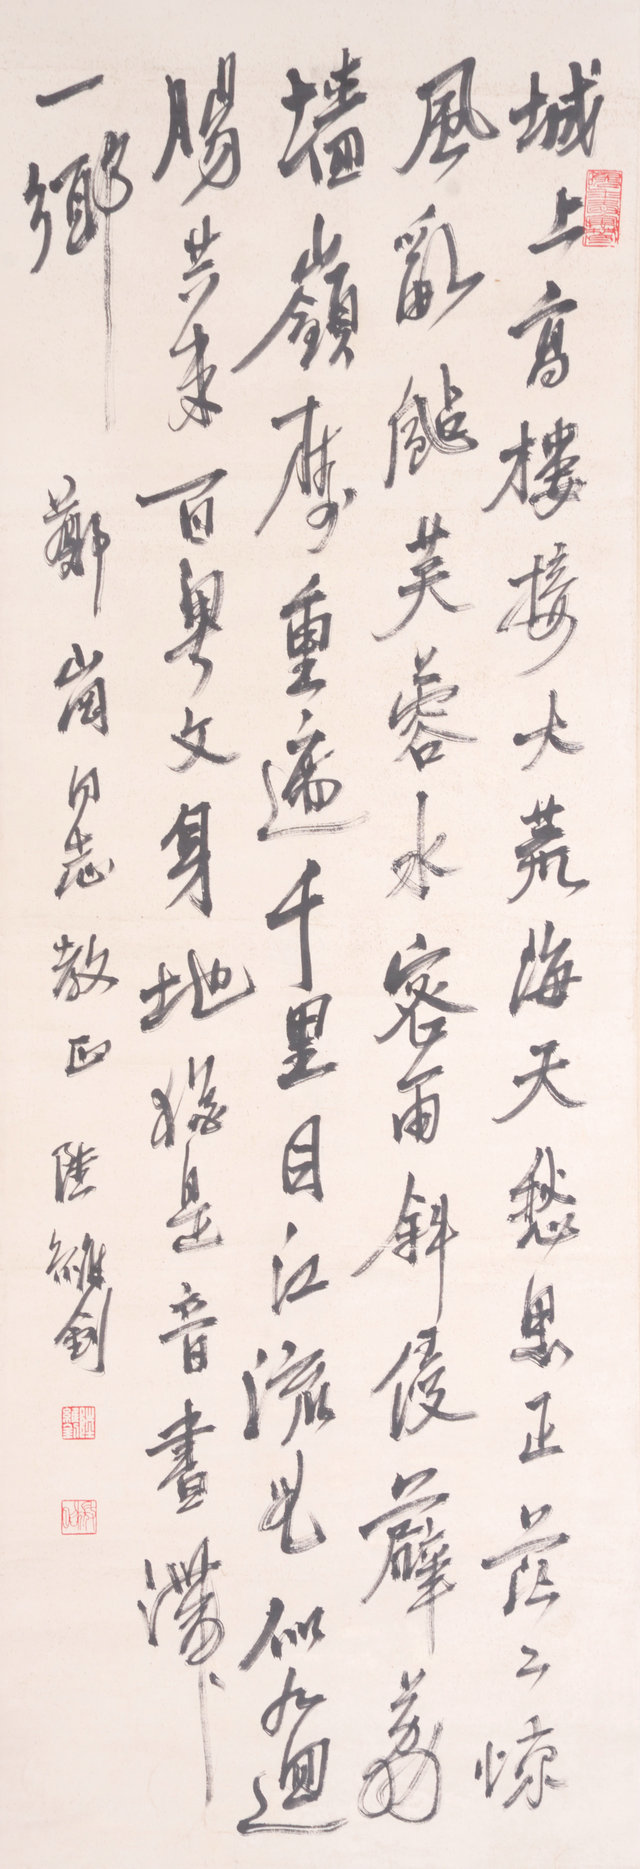 城上高樓接大荒海天愁思正茫〻惊
風亂颭芙蓉水密雨斜侵薜荔
墙嶺樹重遮千里目江流曲似九迴
腸共來百粤文身地猶是音書滯
一鄉
鄭崗同志教正 陸維釗